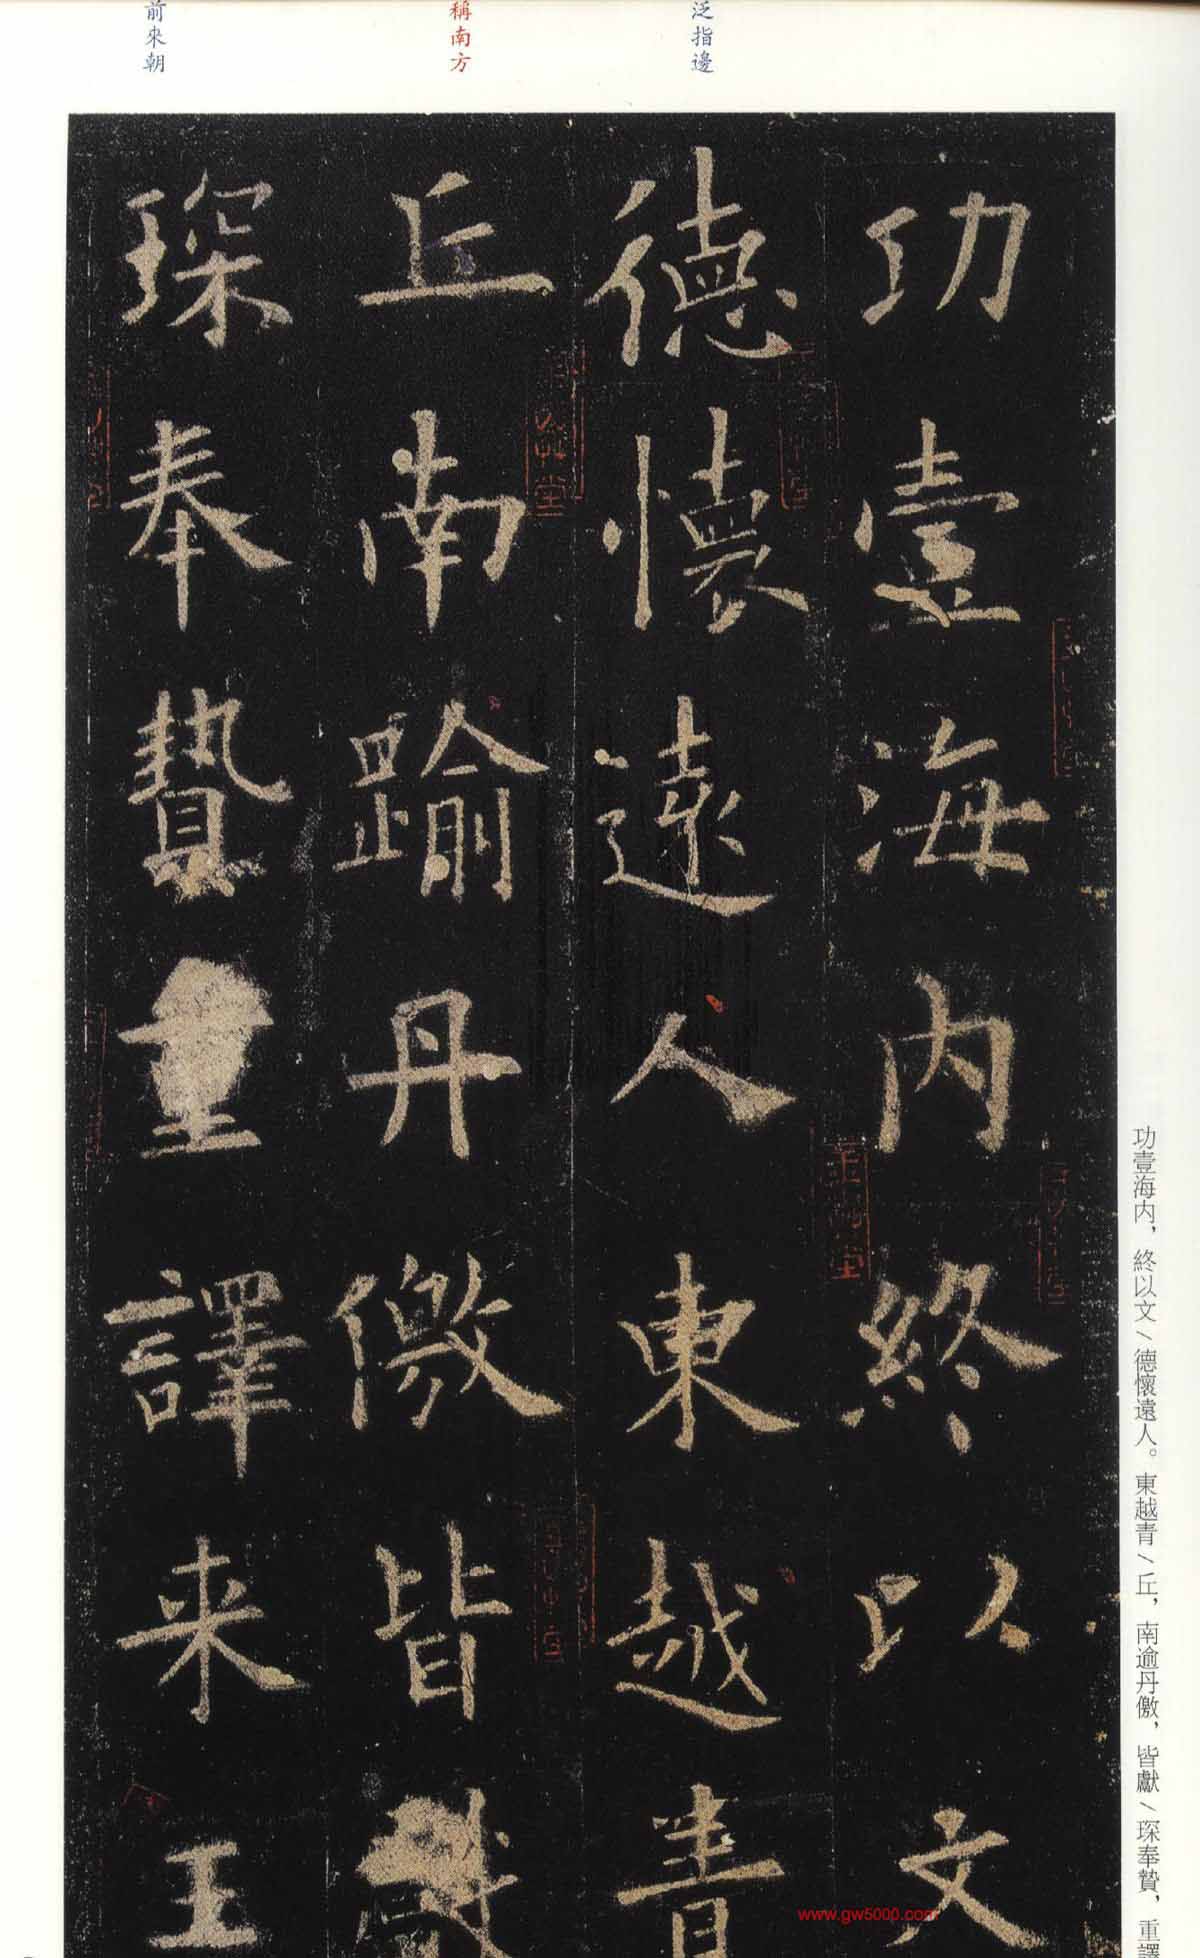 泛指邊
稱南方
前來朝
功壹海内終以文
德懷遠人東越青
丘南踰丹儌皆獻
琛奉贄重譯来王
功壹海内，終以文\德懷遠人。東越青\丘，南逾丹儌，皆獻\琛奉贄，重譯
www.gw5000.com